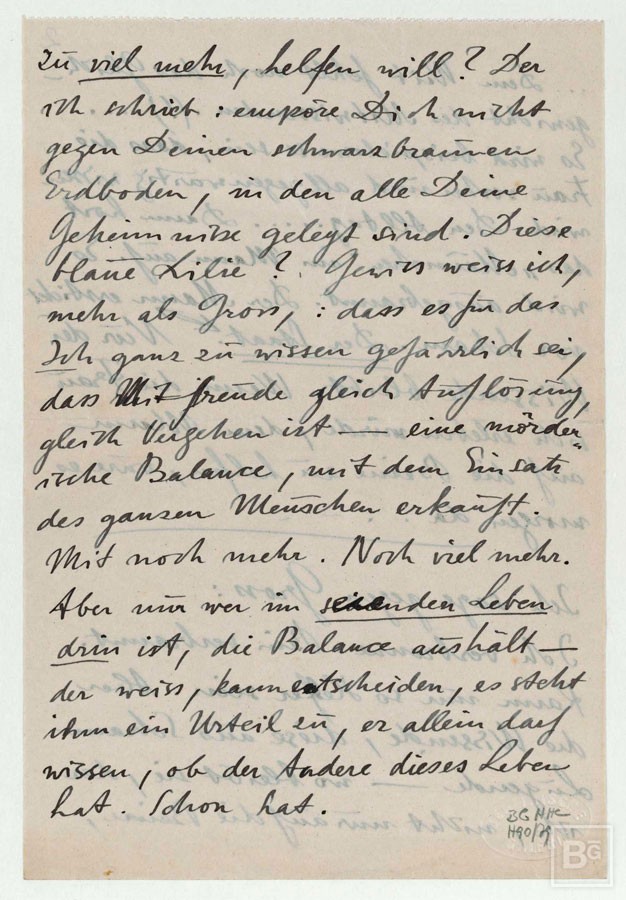 zu viel mehr, helfen will? Der
ich schrieb: empöre Dich nicht
gegen Deinen schwarzbraunen
Erdboden, in den alle Deine
Geheimnisse gelegt sind. Diese
blaue Lilie? Gewiss weiss ich,
mehr als Gross,: dass es für das
Ich ganz zu wissen gefährlich sei,
dass Mitfreude gleich Auflösung,
gleich Vergehen ist — eine mörder"
ische Balance, mit dem Einsatz
des ganzen Menschen erkauft.
Mit noch mehr. Noch viel mehr.
Aber nur wer im seienden Leben
drin ist, die Balance aushält —
der weiss, kann entscheiden, es steht
ihm ein Urteil zu, er allein darf
wissen, ob der Andere dieses Leben
hat. Schon hat.
BG HHC
H90/79
BG